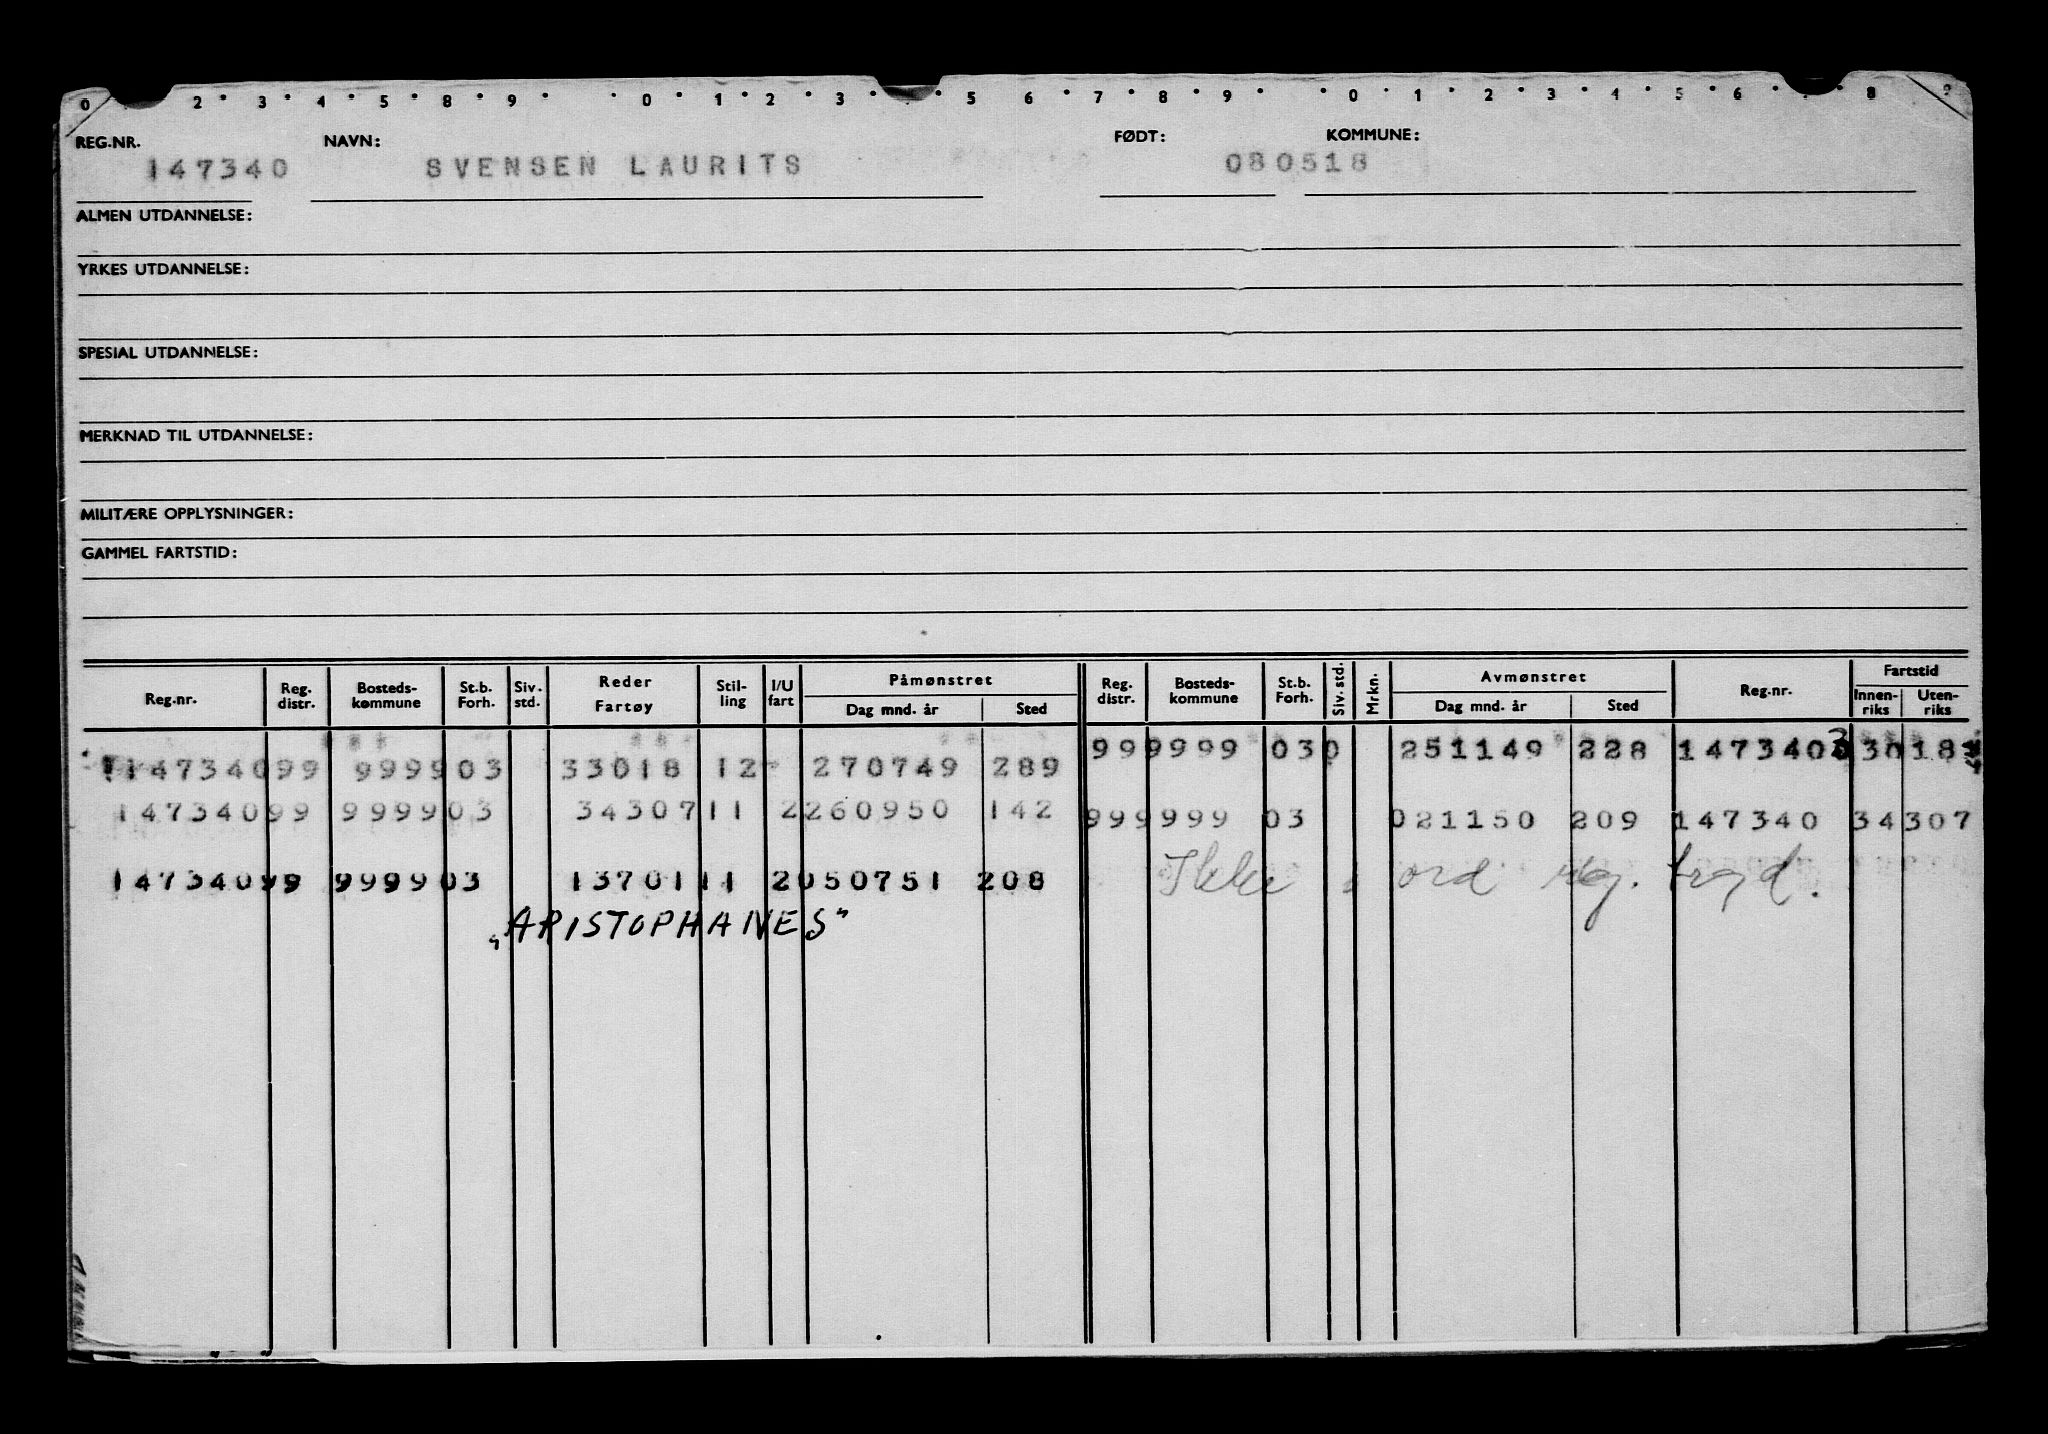 0 2 3 4 5 8 9 0 1 2 3 5 6 7 8 9 0 1 2 3 4 5 6 8 9
REG.NR. NAVN: FØDT: KOMMUNE:
147340 SVENSEN LAURITS 080518
ALMEN UTDANNELSE:
YRKES UTDANNELSE:
SPESIAL UTDANNELSE:
MERKNAD TIL UTDANNELSE:
MILITÆRE OPPLYSNINGER:
GAMMEL FARTSTID:
Reg.nr. Reg. distr. Bosteds-kommune St.b. Forh. Siv. std. Reder Fartøy Stil-ling I/U fart Påmønstret Dag mnd. år Sted Reg. distr. Bosteds-kommune St.b. Forh. Siv. std. Mrkn. Avmønstret Dag mnd. år Sted Reg.nr. Fartstid Innen-riks Uten-riks
147340 99 9999 03 33018 12 270749 289 99 9999 030 251149 228 147340 3 30 18
147340 99 9999 03 34307 11 2 260950 142 99 9999 03 021150 209 147340 34 307
147340 99 9999 03 13701 11 2 050751 208 Ikke ord trgd.
„ARISTOPHANES"